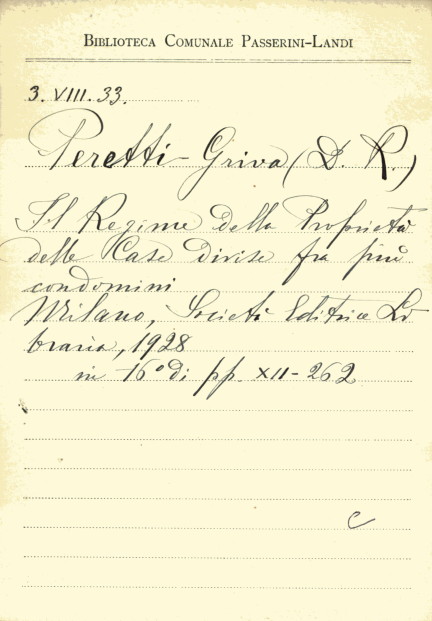 BIBLIOTECA COMUNALE PASSERINI-LANDI
3. VIII. 33.
Peretti-Griva (D. R.)
Il Regime della Proprietà
delle Case divise fra più
condomini
Milano, Società Editrice Li
braria, 1928
in 16° di pp. XII-262
C